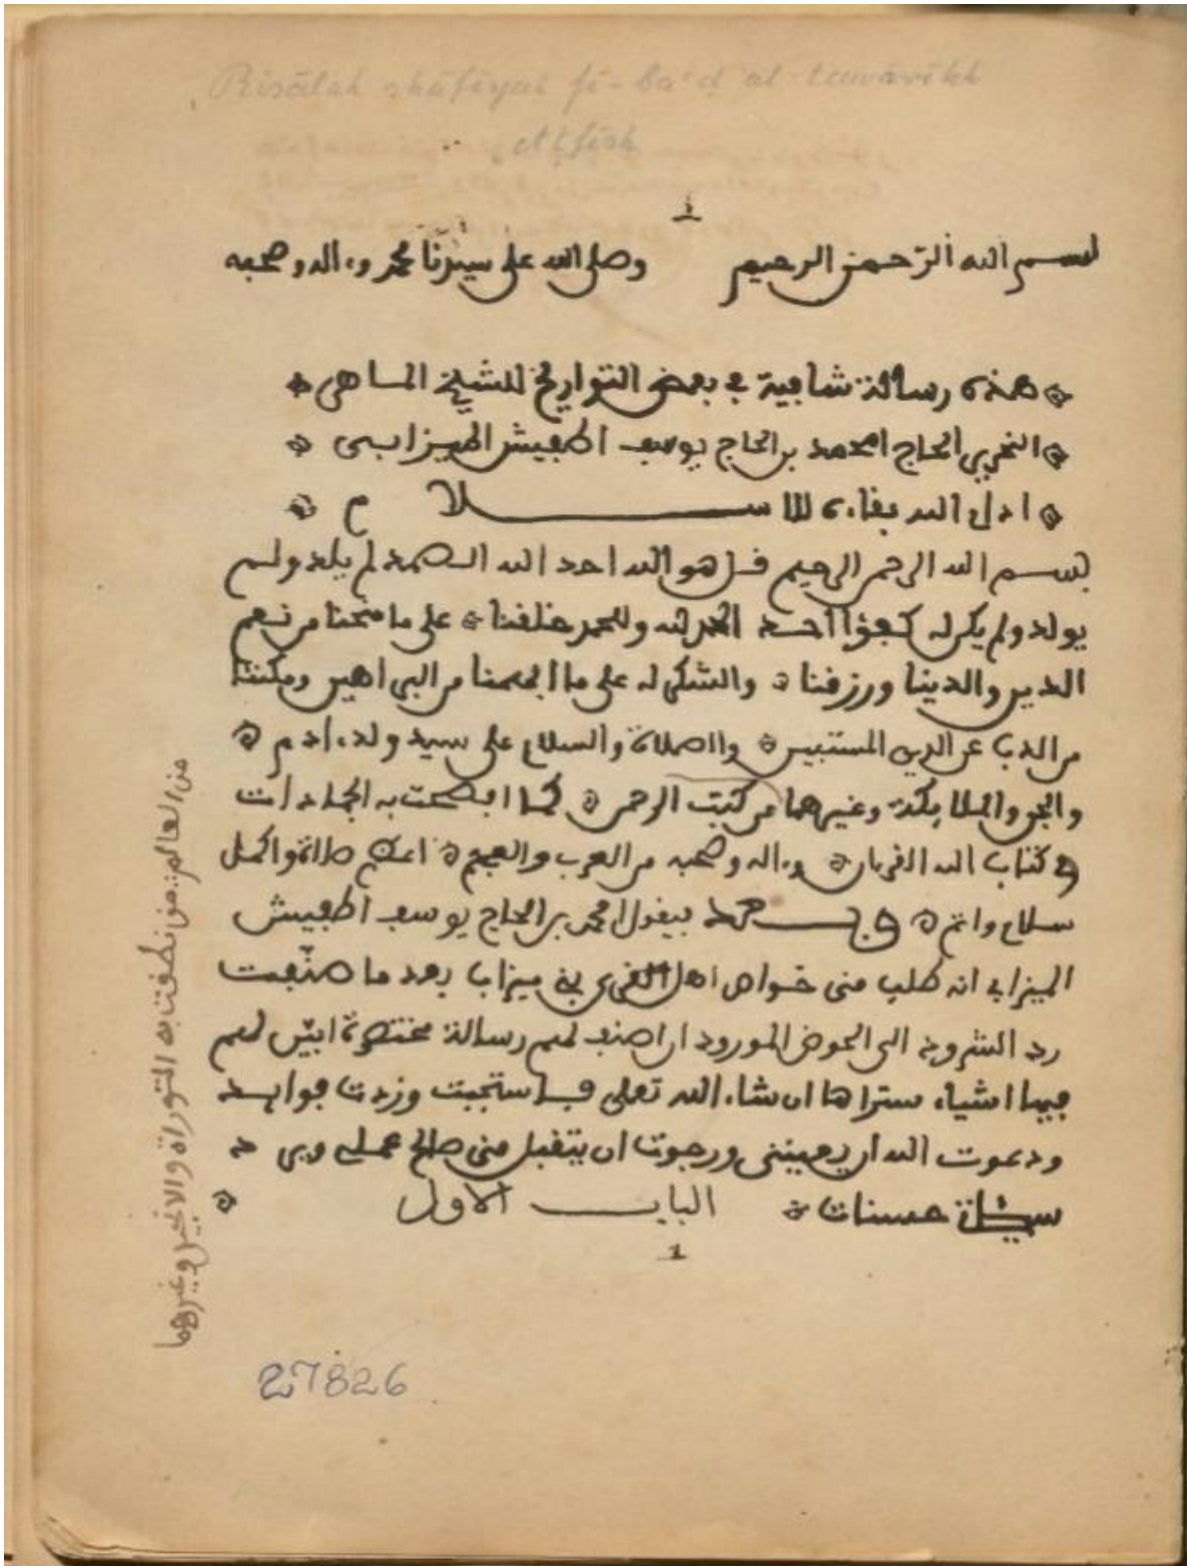 Risālah shāfiyah fī-ba'ḍ al-tawārīkh
Aṭfīsh
1
بسم الله الرّحمن الرحيم وصلى الله على سيدنا محمد وءاله وصحبه
هذه رسالة شافية في بعض التواريخ للشيخ الماهر
النحرير الحاج امحمد بن الحاج يوسف اطفيش الميزابي
ادام الله بقاءه للاسلام
بسم الله الرحمن الرحيم قل هو الله احد الله الصمد لم يلد ولم
يولد ولم يكن له كفؤا احد الحمد لله وللحمد خلقنا على ما منحنا من نعم
الدين والدنيا ورزقنا والشكر له على ما الهمنا من البراهين ومكننا
من الذب عن الدين المستبين والصلاة والسلام على سيد ولد ءادم
والجن والملايكة وغيرهما من كتب الرحمن كما افصحت به الجمادات
وكتاب الله القرءان وءاله وصحبه من العرب والعجم اعظم صلاة واكمل
سلام واتم وبعد فيقول امحمد بن الحاج يوسف اطفيش
الميزابي انه طلب مني خواص اهل القرى بني ميزاب بعد ما صنفت
رد الشرود الى الحوض المورود ان اصنف لهم رسالة مختصرة ابيّن لهم
فيها اشياء ستراها ان شاء الله تعلى فاستجبت وزدت فوايد
ودعوت الله ان يعينني ورجوت ان يتقبل مني صالح عملي
حسنات الباب الاول
1
من العالم من نطقت به التوراة والانجيل وغيرهما
27826